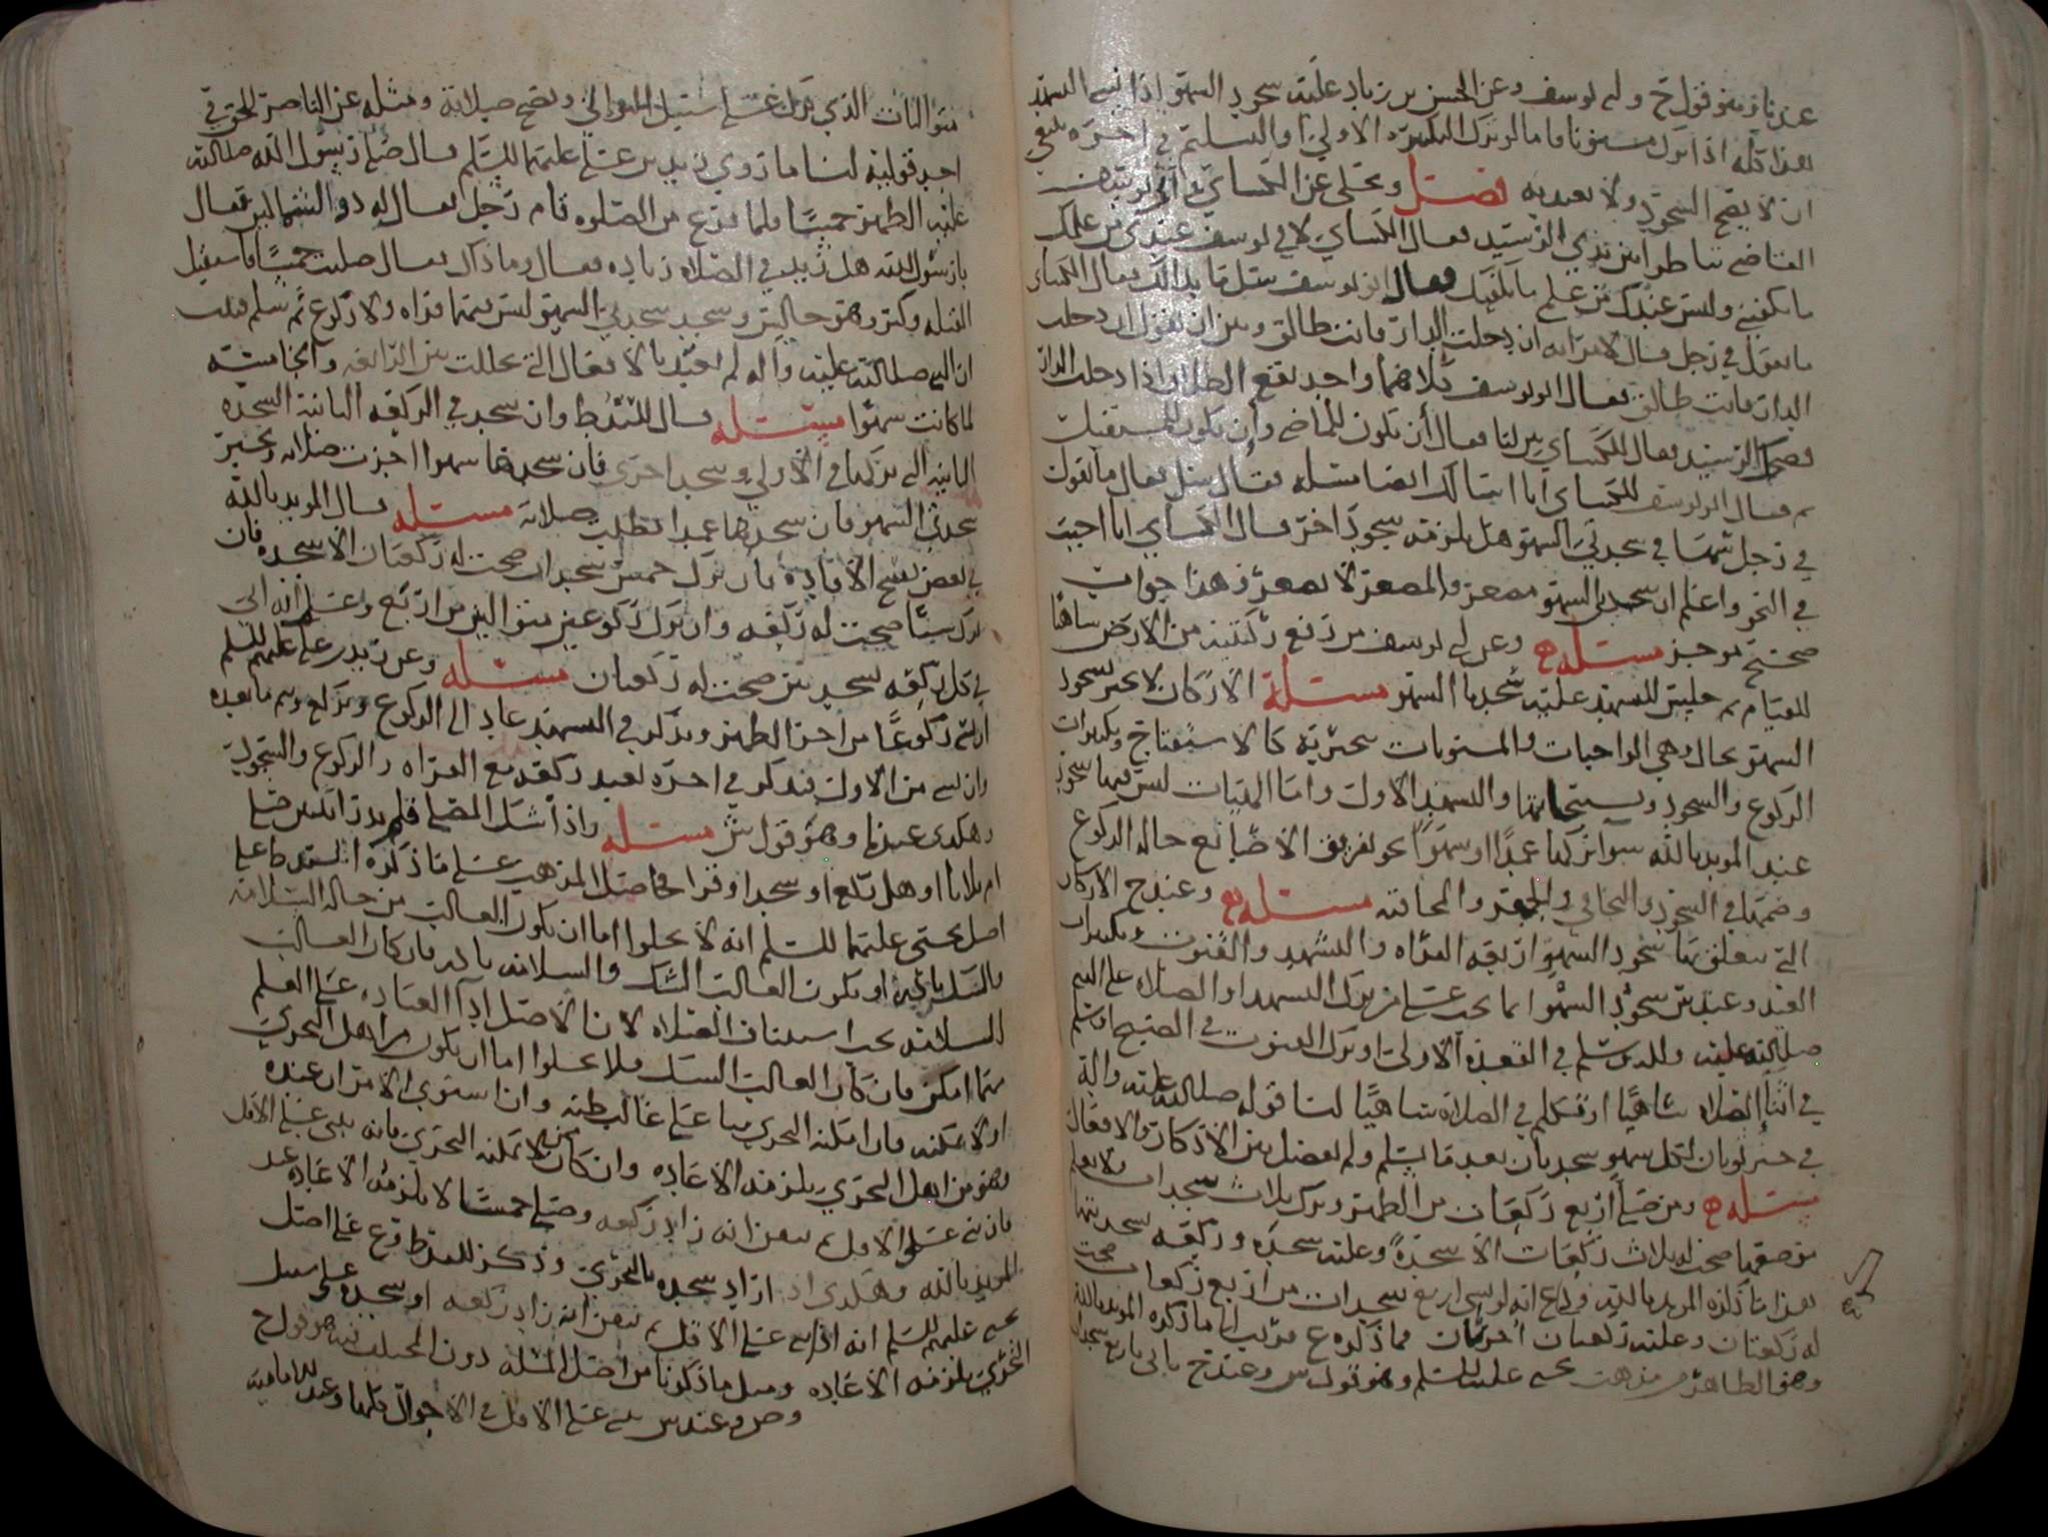 عندنا وهو قول ح وابي يوسف وعن الحسن بن زياد عليه سجود السهو اذا نسي التشهد
هذا كله اذا ترك مسنونا فاما لو ترك التكبيره الاولى او التسليم في اخره
ان لا يصح السجود ولا يعتد به فصل وحكي عن الكسائي وابي يوسف
القاضي تناظرا بين يدي الرشيد فقال الكسائي لابي يوسف عندي من علمك
ما يكفيني وليس عندك من علمي ما يكفيك فقال ابو يوسف سل ما بدا لك فقال الكسائي
ما تقول في رجل قال لامراته ان دخلت الدار فانت طالق وبين ان يقول ان دخلت
الدار فانت طالق فقال ابو يوسف كلاهما واحد يقع الطلاق اذا دخلت الدار
فضحك الرشيد فقال للكسائي بين لنا فقال أن تكون للماضي وإن تكون للمستقبل
ثم قال ابو يوسف للكسائي انا اسالك ايضا مسئله فقال سل فقال ما تقول
في رجل سها في سجدتي السهو هل يلزمه سجود اخر قال الكسائي انا اجيب
في النحو واعلم ان سجدتي السهو مصغر والمصغر لا يصغر فهذا جواب
صحيح موجز مسئله وعن ابي يوسف من رفع ركبتيه من الارض ساهيا
للقيام ثم جلس للتشهد عليه سجدتا السهو مسئلة الاركان لا تجبر بسجود
السهو بحال وهي الواجبات والمسنونات تنجبر به كالاستفتاح وتكبيرات
الركوع والسجود وتسبيحاتها والتشهد الاول واما الهيئات ليس فيها سجود
عند المويد بالله سوا تركها عمدا او سهوا نحو تفريق الاصابع حالة الركوع
وضمها في السجود والتجافي والجهر والمخافته مسئله وعند ح الاذكار
التي يتعلق بها سجود السهو اربعه القراه والتشهد والقنوت وتكبيرات
العيد وعند ش سجود السهو انما يجب على من ترك التشهد او الصلاه على النبي
صلى الله عليه والله وسلم في القعدة الاولى او ترك القنوت في الصبح او سلم
في اثنا الصلاه ساهيا او تكلم في الصلاة ساهيا لنا قوله صلى الله عليه واله
في خبر ثوبان لكل سهو سجدتان بعد ما يسلم ولم يفصل بين الاذكار والافعال
مسئله ومن صلى اربع ركعات من الظهر وترك ثلاث سجدات ولا يعلم
موضعها صحت له ثلاث ركعات الا سجدة وعليه سجده وركعه بسجدتيها
هذا ما ذكره المويد بالله وفي ع انه لو نسي اربع سجدات من اربع ركعات صحت
له ركعتان وعليه ركعتان اخريان فما ذكره ع قريب مما ذكره المويد بالله
وهو الظاهر من مذهب يحيى عليه السلم وهو قول س وعند ح ياتي باربع سجدات
متواليات الذي ترك على سبيل التوالي وتصح صلاته ومثله عن الناصر للحق في
احد قوليه لنا ما روي زيد بن علي عليهما السلم قال صلى رسول الله صلى الله
عليه الظهر خمسا فلما فرغ من الصلوه قام رجل يقال له ذو الشمالين فقال
يا رسول الله هل زيد في الصلاه زياده فقال وما ذاك فقال صليت خمسا فاستقبل
القبله وكبر وهو جالس وسجد سجدتي السهو ليس فيهما قراه ولا ركوع ثم سلم فثبت
ان النبي صلى الله عليه واله لم يعتد بالافعال التي تخللت بين الرابعه والخامسه
لما كانت سهوا مسئله قال وان سجد في الركعه الثانية السجده
الثانيه التي تركها في الاولى وسجد اخرى فان سجدها سهوا اجزت صلاته وتجبر
سجدتي السهو فان سجدها عمدا بطلت صلاته مسئله قال المويد بالله
في بعض نسخ الافاده فان ترك خمس سجدات صحت له ركعتان الا سجده فان
ترك ستا صحت له ركعه وان ترك ركوعين متواليين من اربع وعلم انه اتى
في كل ركعه بسجدتين صحت له ركعتان مسئله وعن زيد بن علي عليهم السلم
ان نسي ركوعا من اخر الظهر وتذكر في التشهد عاد الى الركوع وتركع وتم ما بعده
وان نسي من الاولى فتذكر في اخره يعيد ركعه مع القراه والركوع والسجود
وهكذى عندنا وهو قول ش مسئله واذا شك المصلي فلم يدر اثنتين صلى
ام ثلاثا او هل ركع او سجد او قرا فحاصل المذهب على ما ذكره السيد ط على
اصل يحيى عليهما السلم انه لا يخلوا اما ان يكون الغالب من حاله السلامه
والشك يا او يكون الغالب الشك والسلامه نادره فان كان الغالب
السلامه يجب استيناف الصلاه لان الاصل ادا العباده على العلم
مهما امكن فان كان الغالب الشك فلا يخلوا اما ان يكون من اهل التحري
او لا يمكنه فان امكنه التحري بنا على غالب ظنه وان استوى الامران عنده
وهو من اهل التحري يلزمه الاعاده وان كان ممن لا يمكنه التحري فانه يبني على الاقل
فان بنى على الاقل ثم تيقن انه زاد ركعه وصلى خمسا لا يلزمه الاعاده عند
المويد بالله وهكذى اذا زاد سجده بالتحري وذكر السيد ط وع على اصل
يحيى عليهم السلم انه اذا بنى على الاقل ثم تيقن انه زاد ركعه او سجده على سبيل
التحري يلزمه الاعاده ومثل ما ذكرنا من اصل المسئله دون المختلف فيه هو قول ح
وص وعند س يبني على الاقل في الاحوال كلها وعند الاماميه